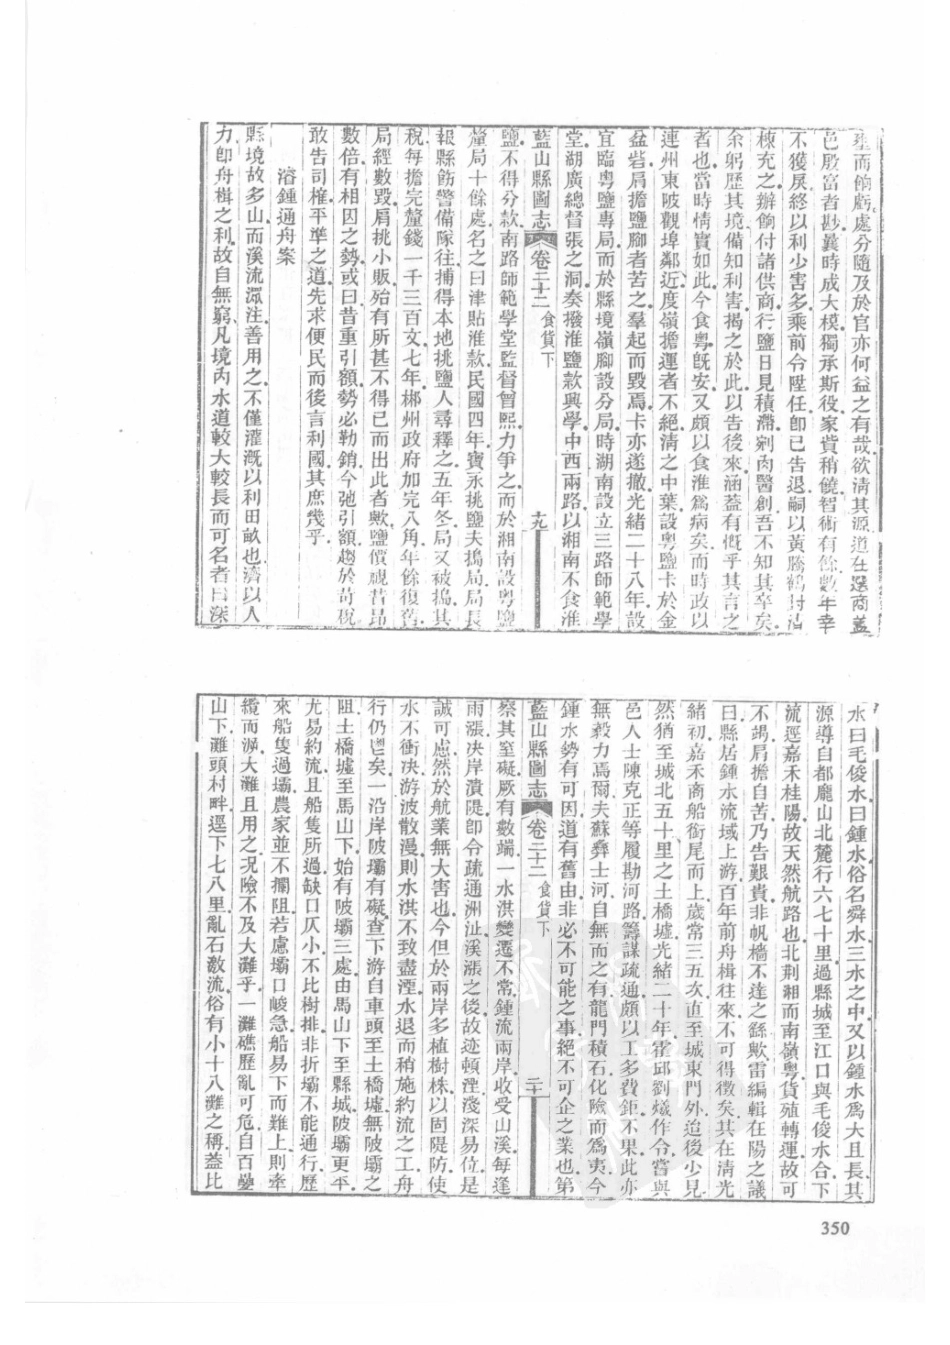 而餉虧處分隨及於官亦何益之有哉欲清其源道在選商蓋
邑殷富者尠曩時成大模獨承斯役家貲稍饒智術有餘數年幸
不獲戾終以利少害多乘前令陞任卽已告退嗣以黃騰鶴封沽
棟充之辦餉付諸供商行鹽日見積滯剜肉醫創吾不知其卒矣
余躬歷其境備知利害揭之於此以告後來涵蓋有慨乎其言之
者也當時情實如此今食粵旣安又頗以食淮爲病矣而時政以
連州東陂觀埠鄰近度嶺擔運者不絕清之中葉設粵鹽卡於金
盆砦肩擔鹽腳者苦之羣起而毀焉卡亦遂撤光緒二十八年設
宜臨粵鹽專局而於縣境嶺腳設分局時湖南設立三路師範學
堂湖廣總督張之洞奏撥淮鹽款興學中西兩路以湘南不食淮
藍山縣圖志 卷二十二 食貨下 十九
鹽不得分款南路師範學堂監督曾熙力爭之而於湘南設粵鹽
釐局十餘處名之曰津貼淮款民國四年寶永挑鹽夫搗局局長
報縣飭警備隊往捕得本地挑鹽人尋釋之五年冬局又被搗其
稅每擔完釐錢一千三百文七年郴州政府加完八角年餘復舊
局經數毀肩挑小販殆有所甚不得已而出此者歟鹽價視昔昂
數倍有相因之勢或曰昔重引額勢必勒銷今弛引額趨於苛稅
敢告司榷平準之道先求便民而後言利國其庶幾乎
濬鍾通舟案
縣境故多山而溪流㵎注善用之不僅灌溉以利田畝也濟以人
力卽舟楫之利故自無窮凡境內水道較大較長而可名者曰深
水曰毛俊水曰鍾水俗名舜水三水之中又以鍾水爲大且長其
源導自都龐山北麓行六七十里過縣城至江口與毛俊水合下
流逕嘉禾桂陽故天然航路也北荆湘而南嶺粵貨殖轉運故可
不竭肩擔自苦乃告艱貴非帆檣不達之繇歟雷編輯在陽之議
曰縣居鍾水流域上游百年前舟楫往來不可得徵矣其在清光
緒初嘉禾商船銜尾而上歲常三五次直至城東門外迨後少見
然猶至城北五十里之土橋墟光緒二十年霍邱劉燨作令嘗與
邑人士陳克正等履勘河路籌謀疏通頗以工多費鉅不果此亦
無毅力焉爾夫蘇彝士河自無而之有龍門積石化險而爲夷今
鍾水勢有可因道有舊由非必不可能之事絕不可企之業也第
藍山縣圖志 卷二十二 食貨下 二十
察其窒礙厥有數端一水洪變遷不常鍾流兩岸收受山溪每逢
雨漲決岸潰隄卽令疏通洲沚溪漲之後故迹頓湮淺深易位是
誠可慮然於航業無大害也今但於兩岸多植樹株以固隄防使
水不衝決游波散漫則水洪不致盡湮水退而稍施約流之工舟
行仍鬯矣一沿岸陂壩有礙查下游自車頭至土橋墟無陂壩之
阻土橋墟至馬山下始有陂壩三處由馬山下至縣城陂壩更平
尤易約流且船隻所過缺口仄小不比樹排非折壩不能通行歷
來船隻過壩農家並不攔阻若慮壩口峻急船易下而難上則牽
纜而泝大灘且用之况險不及大灘乎一灘礁歷亂可危自百
山下灘頭村畔逕下七八里亂石激流俗有小十八灘之稱蓋比
350